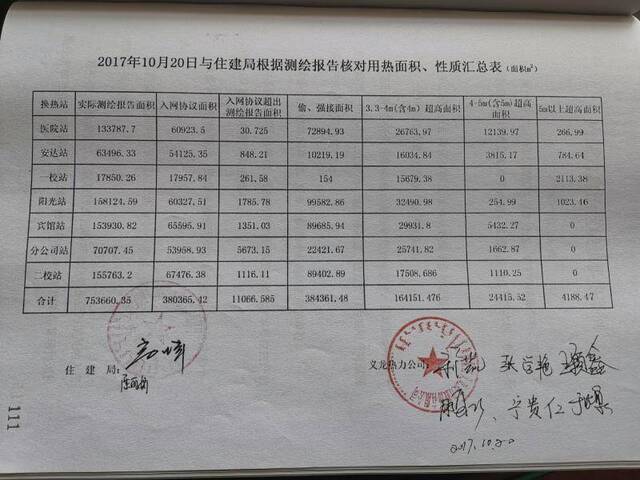 2017年10月20日与住建局根据测绘报告核对用热面积、性质汇总表（面积㎡）
换热站 实际测绘报告面积 入网协议面积 入网协议超出测绘报告面积 偷、强接面积 3.3-4m(含4m)超高面积 4-5m(含5m)超高面积 5m以上超高面积
医院站 133787.7 60923.5 30.725 72894.93 26763.97 12139.97 266.99
安达站 63496.33 54125.35 848.21 10219.19 16034.84 3815.17 784.64
一校站 17850.26 17957.84 261.58 154 15679.38 0 2113.38
阳光站 158124.59 60327.51 1785.78 99582.86 32490.98 254.99 1023.46
宾馆站 153930.82 65595.91 1351.03 89685.94 29931.8 5432.27 0
分公司站 70707.45 53958.93 5673.15 22421.67 25741.82 1662.87 0
二校站 155763.2 67476.38 1116.11 89402.89 17508.686 1110.25 0
合计 753660.35 380365.42 11066.585 384361.48 164151.476 24415.52 4188.47
住建局：
义龙热力公司：
宁贵仁
2017.10.20
111